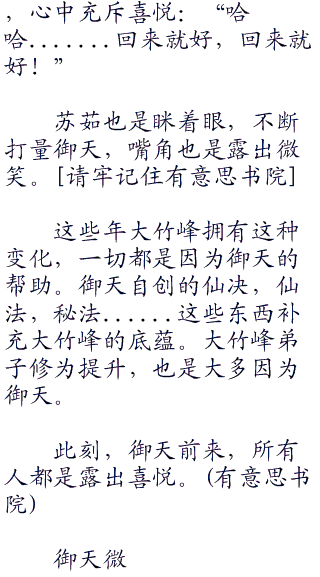 ，心中充斥喜悦：“哈
哈.......回来就好，回来就
好！”
苏茹也是眯着眼，不断
打量御天，嘴角也是露出微
笑。[请牢记住有意思书院]
这些年大竹峰拥有这种
变化，一切都是因为御天的
帮助。御天自创的仙决，仙
法，秘法......这些东西补
充大竹峰的底蕴。大竹峰弟
子修为提升，也是大多因为
御天。
此刻，御天前来，所有
人都是露出喜悦。(有意思书
院)
御天微